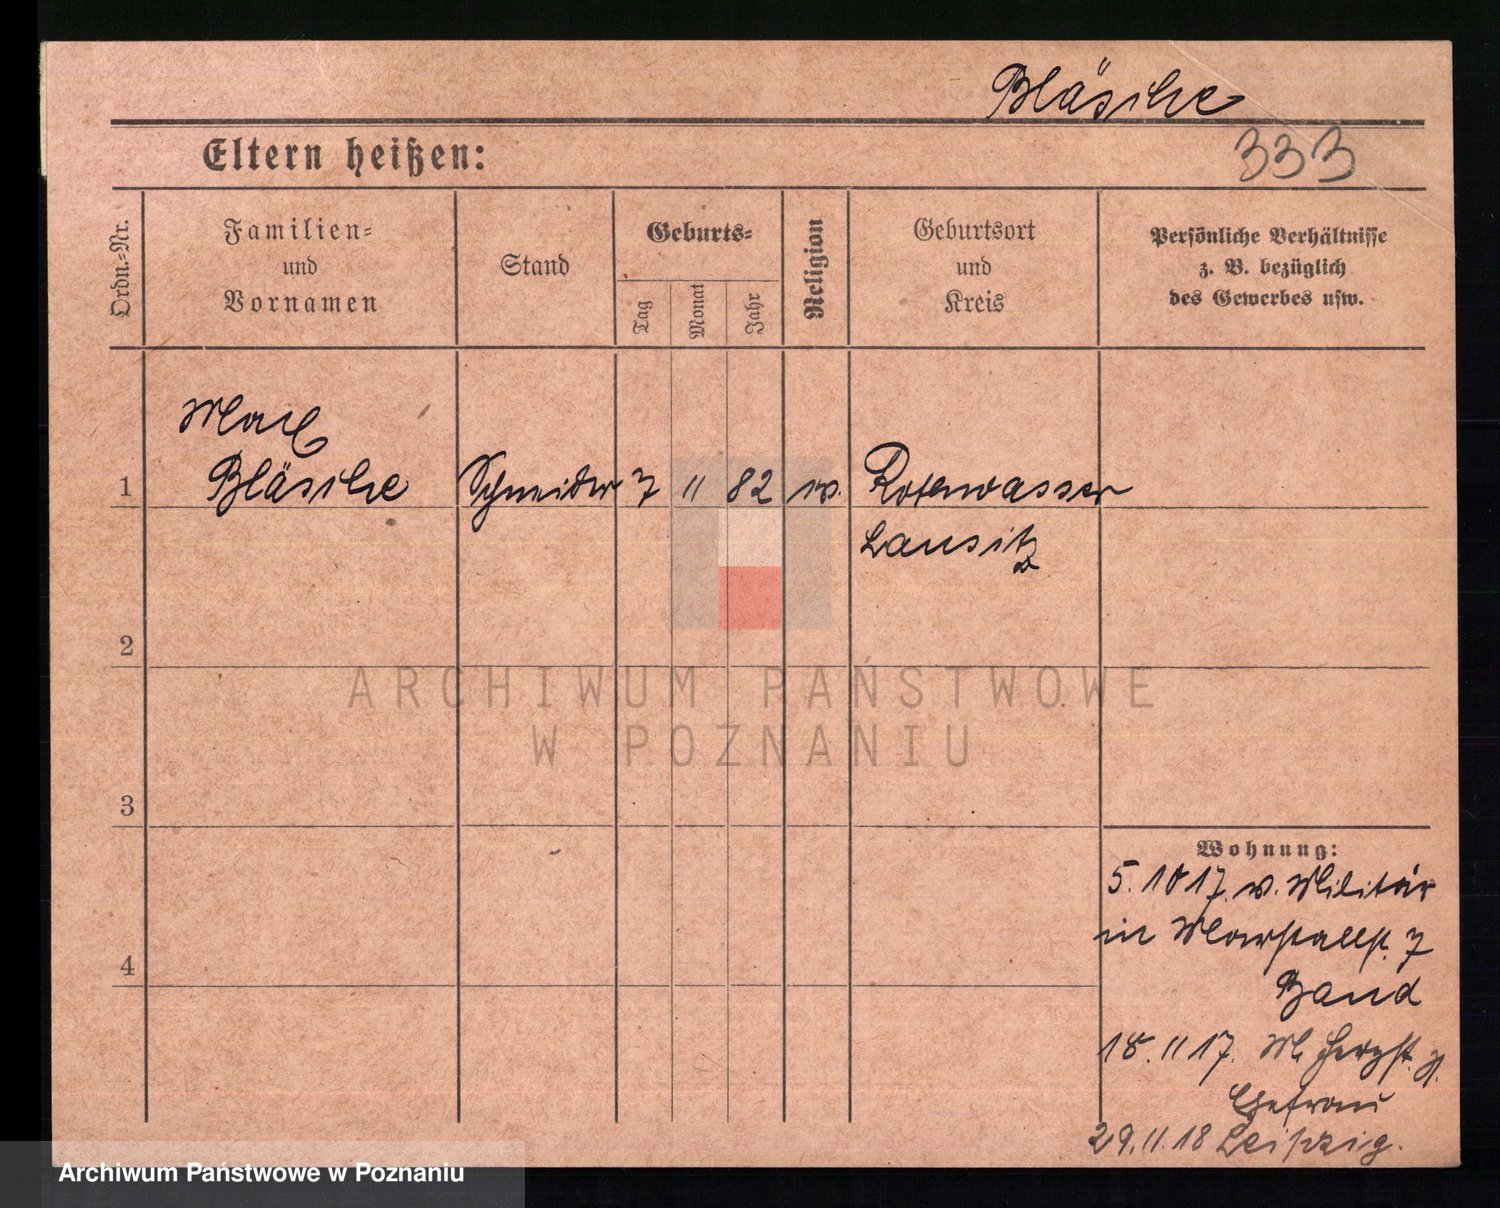 Bläsche
333
Eltern heißen:
Ordn.-Nr.
Familien-
und
Vornamen
Stand
Geburts-
Tag
Monat
Jahr
Religion
Geburtsort
und
Kreis
Persönliche Verhältnisse
z. B. bezüglich
des Gewerbes usw.
Max
1 Bläsche Schneider 7 11 82 Rotenwasser
Lausitz
2
ARCHIWUM PAŃSTWOWE
W POZNANIU
3
4
Wohnung:
5.10 17. v. Militär
in Marstallst. 7
Band
18. 11 17.
Ehefrau
29.11.18 Leipzig.
Archiwum Państwowe w Poznaniu